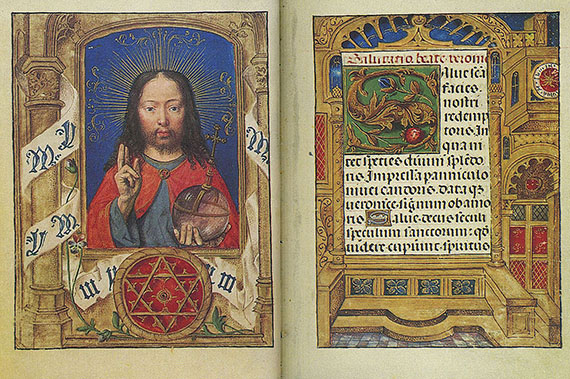 Salutatio beate veroni
Salue sca
facies
nostri
redemp
toris. In
qua ni
tet species diuini splēdo
ris. Impressa panniculo
niuei candoris. data qȝ
ueronice signum ob amo
rē. Salue decus seculi
speculum sanctorum: qd̄
uidere cupiunt spiritus